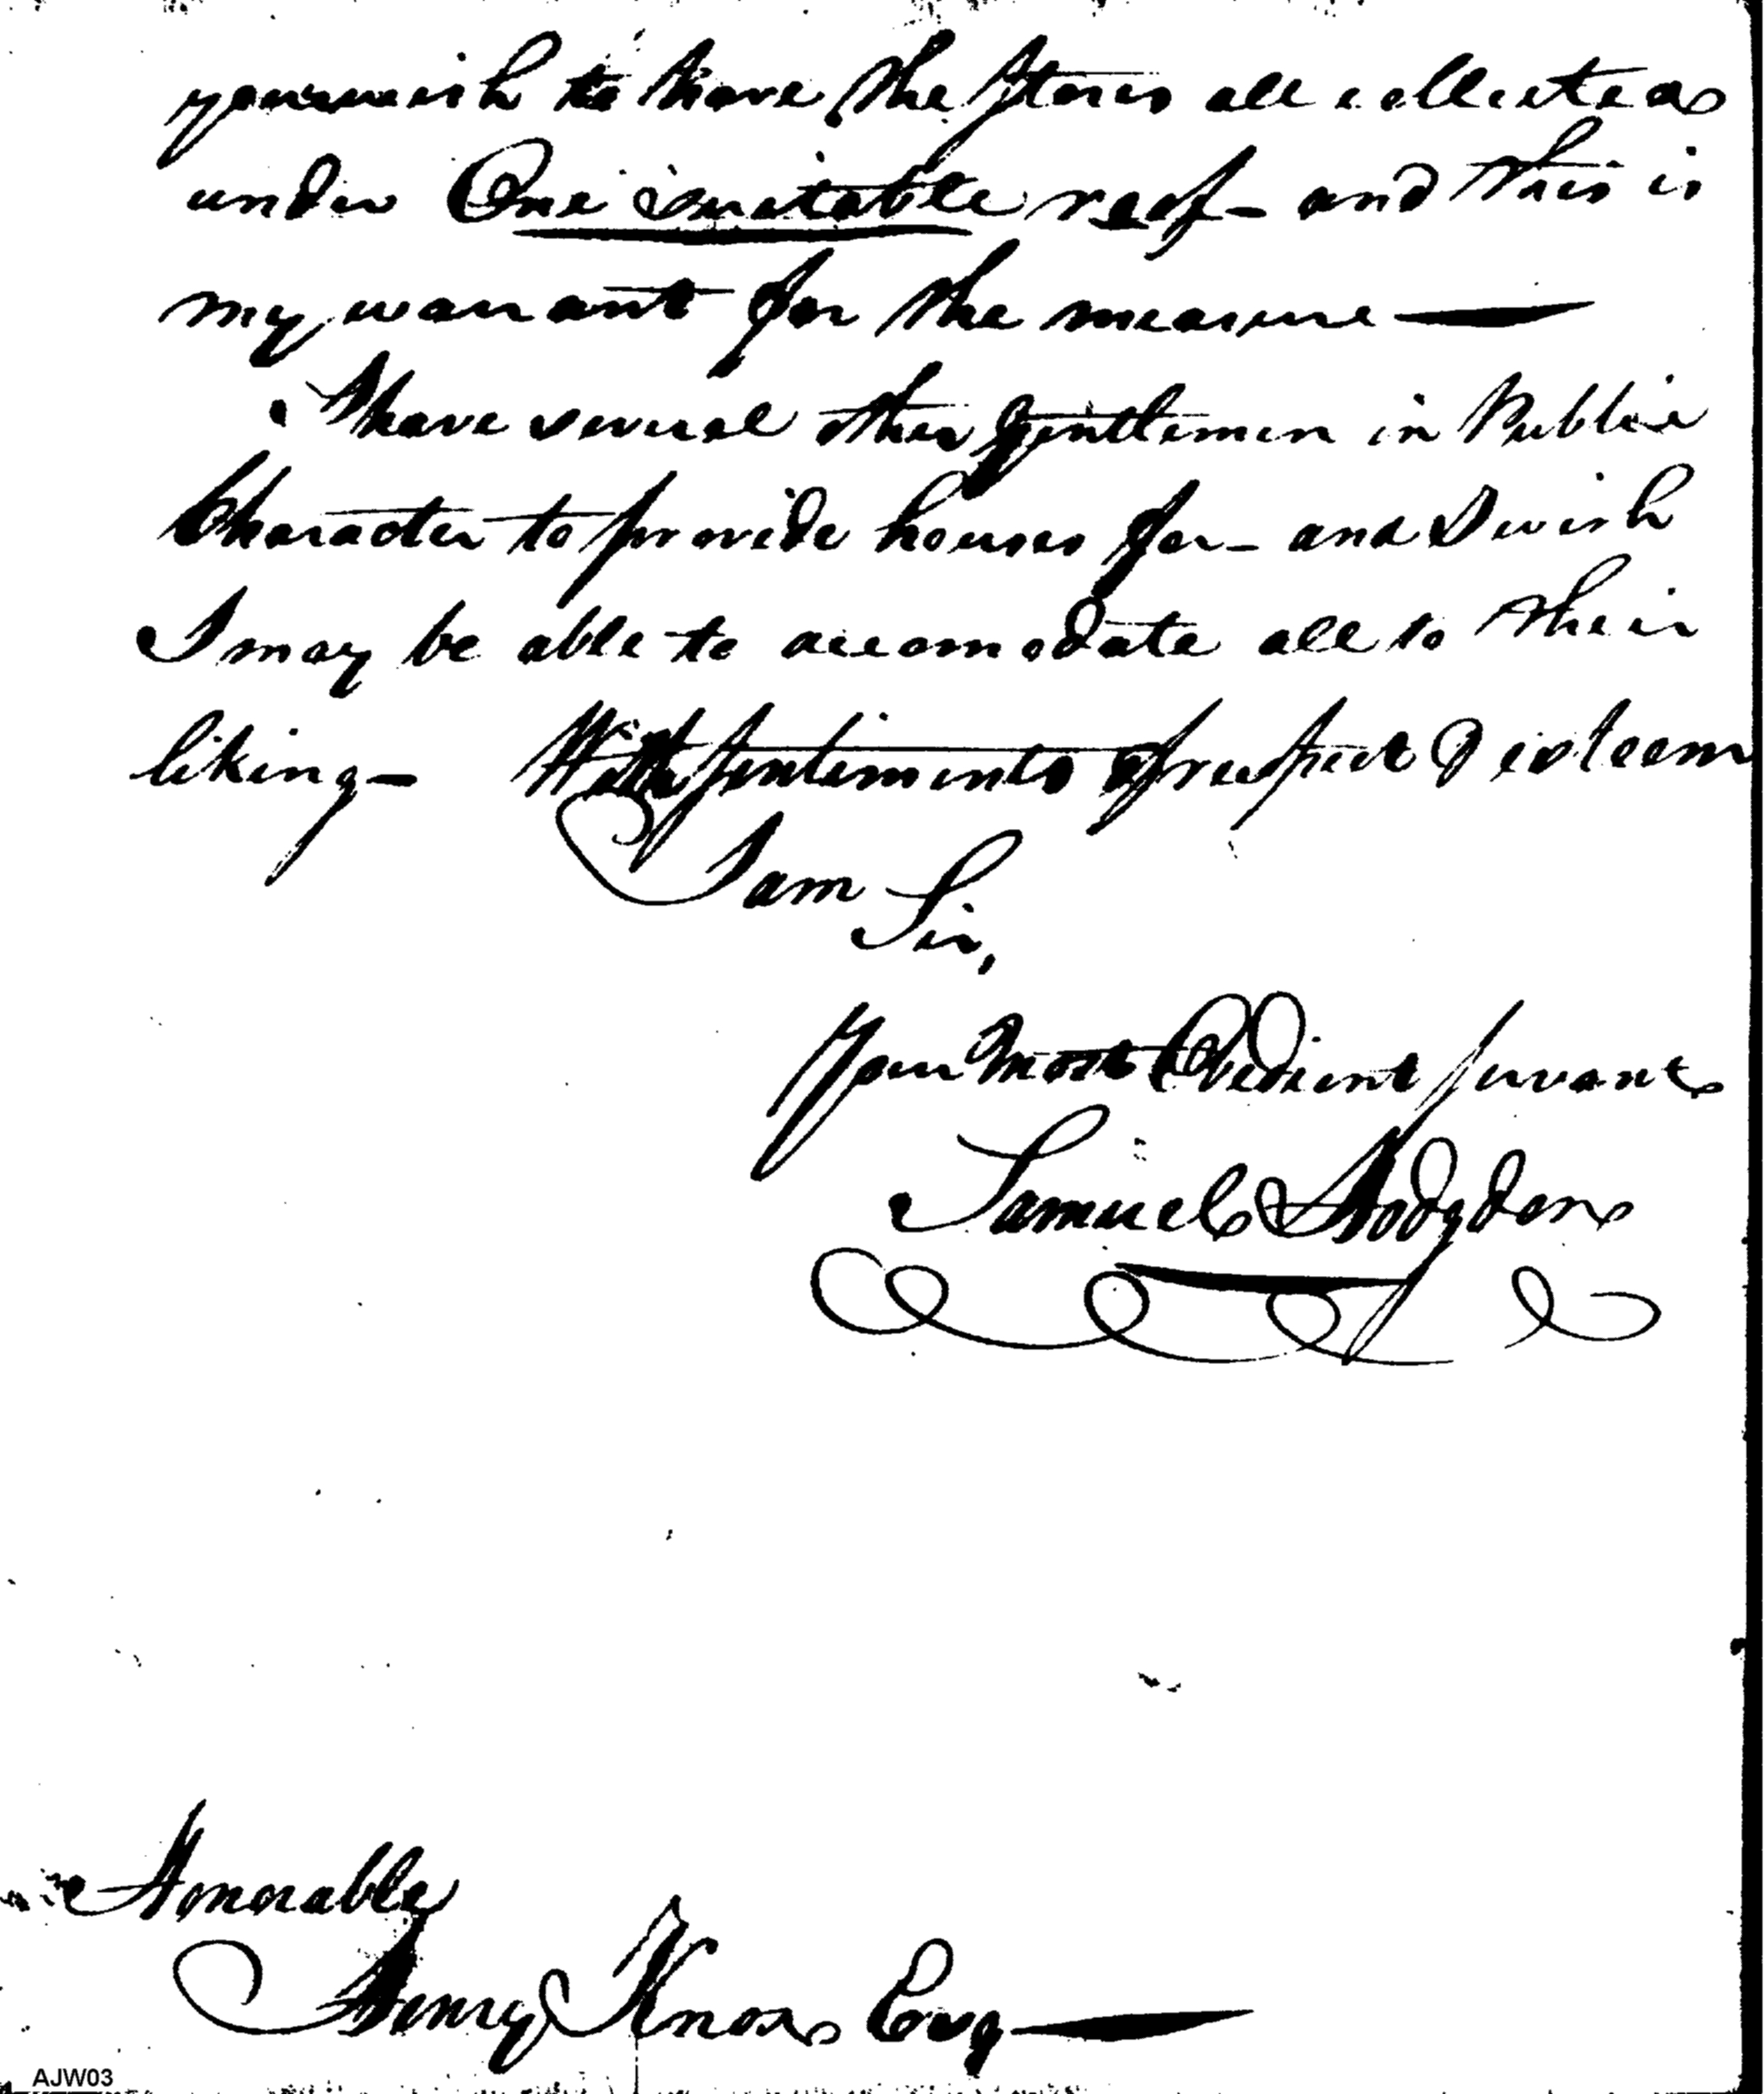 your wish to have the Stores all collected
under One suitable roof - and this is
my warrant for the measure —
I have several other gentlemen in Public
Character to provide houses for - and I wish
I may be able to accomodate all to their
liking - With sentiments of respect & esteem
I am Sir,
Your Most Obedient Servant
Samuel Hodgdon
Honorable
Henry Knox Esqr —
AJW03